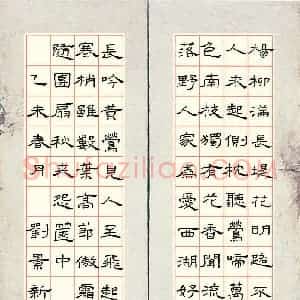 楊柳滿長堤花明路不
人未起側枕聽鶯啼萬
色南枝獨有花香聞流
落野人家盡愛西湖好
長吟黃鶯見人至飛起
寒梢雖數葉高節傲霜
隨團扇秋來怨篋中
乙未春月劉景新
Shufaziliao.COM